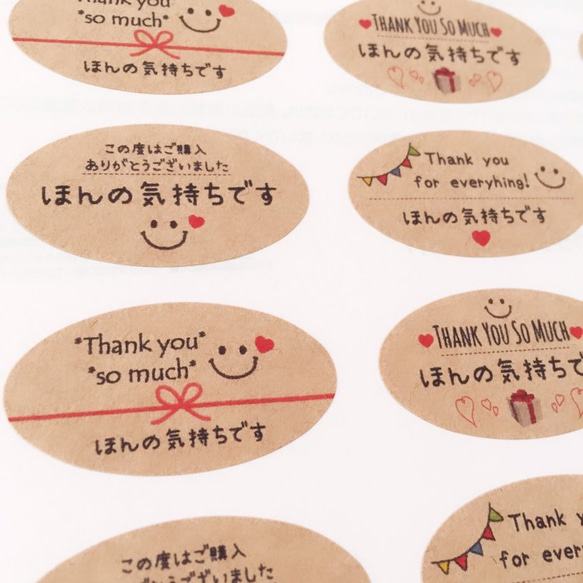 Thank you
*so much*
ほんの気持ちです
THANK YOU SO MUCH
ほんの気持ちです
この度はご購入
ありがとうございました
ほんの気持ちです
Thank you
for everyhing!
ほんの気持ちです
*Thank you*
*so much*
ほんの気持ちです
THANK YOU SO MUCH
ほんの気持ちで
この度はご購入
とうございました
Thank y
for ever